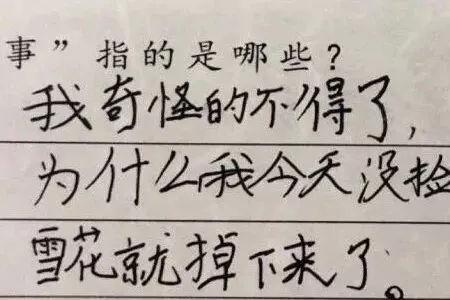 事”指的是哪些？
我奇怪的不得了，
为什么我今天没捡
雪花就掉下来了。